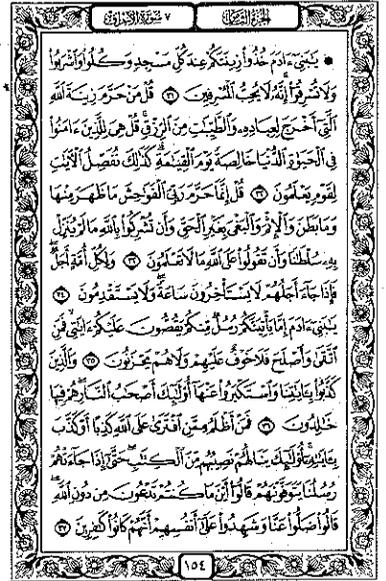 الجزء الثامن ٧ سورة الأعراف
۞ يَٰبَنِىٓ ءَادَمَ خُذُوا۟ زِينَتَكُمْ عِندَ كُلِّ مَسْجِدٍ وَكُلُوا۟ وَٱشْرَبُوا۟
وَلَا تُسْرِفُوٓا۟ إِنَّهُۥ لَا يُحِبُّ ٱلْمُسْرِفِينَ ٣١ قُلْ مَنْ حَرَّمَ زِينَةَ ٱللَّهِ
ٱلَّتِىٓ أَخْرَجَ لِعِبَادِهِۦ وَٱلطَّيِّبَٰتِ مِنَ ٱلرِّزْقِ قُلْ هِىَ لِلَّذِينَ ءَامَنُوا۟
فِى ٱلْحَيَوٰةِ ٱلدُّنْيَا خَالِصَةً يَوْمَ ٱلْقِيَٰمَةِ كَذَٰلِكَ نُفَصِّلُ ٱلْءَايَٰتِ
لِقَوْمٍ يَعْلَمُونَ ٣٢ قُلْ إِنَّمَا حَرَّمَ رَبِّىَ ٱلْفَوَٰحِشَ مَا ظَهَرَ مِنْهَا
وَمَا بَطَنَ وَٱلْإِثْمَ وَٱلْبَغْىَ بِغَيْرِ ٱلْحَقِّ وَأَن تُشْرِكُوا۟ بِٱللَّهِ مَا لَمْ يُنَزِّلْ
بِهِۦ سُلْطَٰنًا وَأَن تَقُولُوا۟ عَلَى ٱللَّهِ مَا لَا تَعْلَمُونَ ٣٣ وَلِكُلِّ أُمَّةٍ أَجَلٌ
فَإِذَا جَآءَ أَجَلُهُمْ لَا يَسْتَأْخِرُونَ سَاعَةً وَلَا يَسْتَقْدِمُونَ ٣٤
يَٰبَنِىٓ ءَادَمَ إِمَّا يَأْتِيَنَّكُمْ رُسُلٌ مِّنكُمْ يَقُصُّونَ عَلَيْكُمْ ءَايَٰتِى فَمَنِ
ٱتَّقَىٰ وَأَصْلَحَ فَلَا خَوْفٌ عَلَيْهِمْ وَلَا هُمْ يَحْزَنُونَ ٣٥ وَٱلَّذِينَ
كَذَّبُوا۟ بِـَٔايَٰتِنَا وَٱسْتَكْبَرُوا۟ عَنْهَآ أُو۟لَٰٓئِكَ أَصْحَٰبُ ٱلنَّارِ هُمْ فِيهَا
خَٰلِدُونَ ٣٦ فَمَنْ أَظْلَمُ مِمَّنِ ٱفْتَرَىٰ عَلَى ٱللَّهِ كَذِبًا أَوْ كَذَّبَ
بِـَٔايَٰتِهِۦٓ أُو۟لَٰٓئِكَ يَنَالُهُمْ نَصِيبُهُم مِّنَ ٱلْكِتَٰبِ حَتَّىٰٓ إِذَا جَآءَتْهُمْ
رُسُلُنَا يَتَوَفَّوْنَهُمْ قَالُوٓا۟ أَيْنَ مَا كُنتُمْ تَدْعُونَ مِن دُونِ ٱللَّهِ
قَالُوا۟ ضَلُّوا۟ عَنَّا وَشَهِدُوا۟ عَلَىٰٓ أَنفُسِهِمْ أَنَّهُمْ كَانُوا۟ كَٰفِرِينَ ٣٧
١٥٤